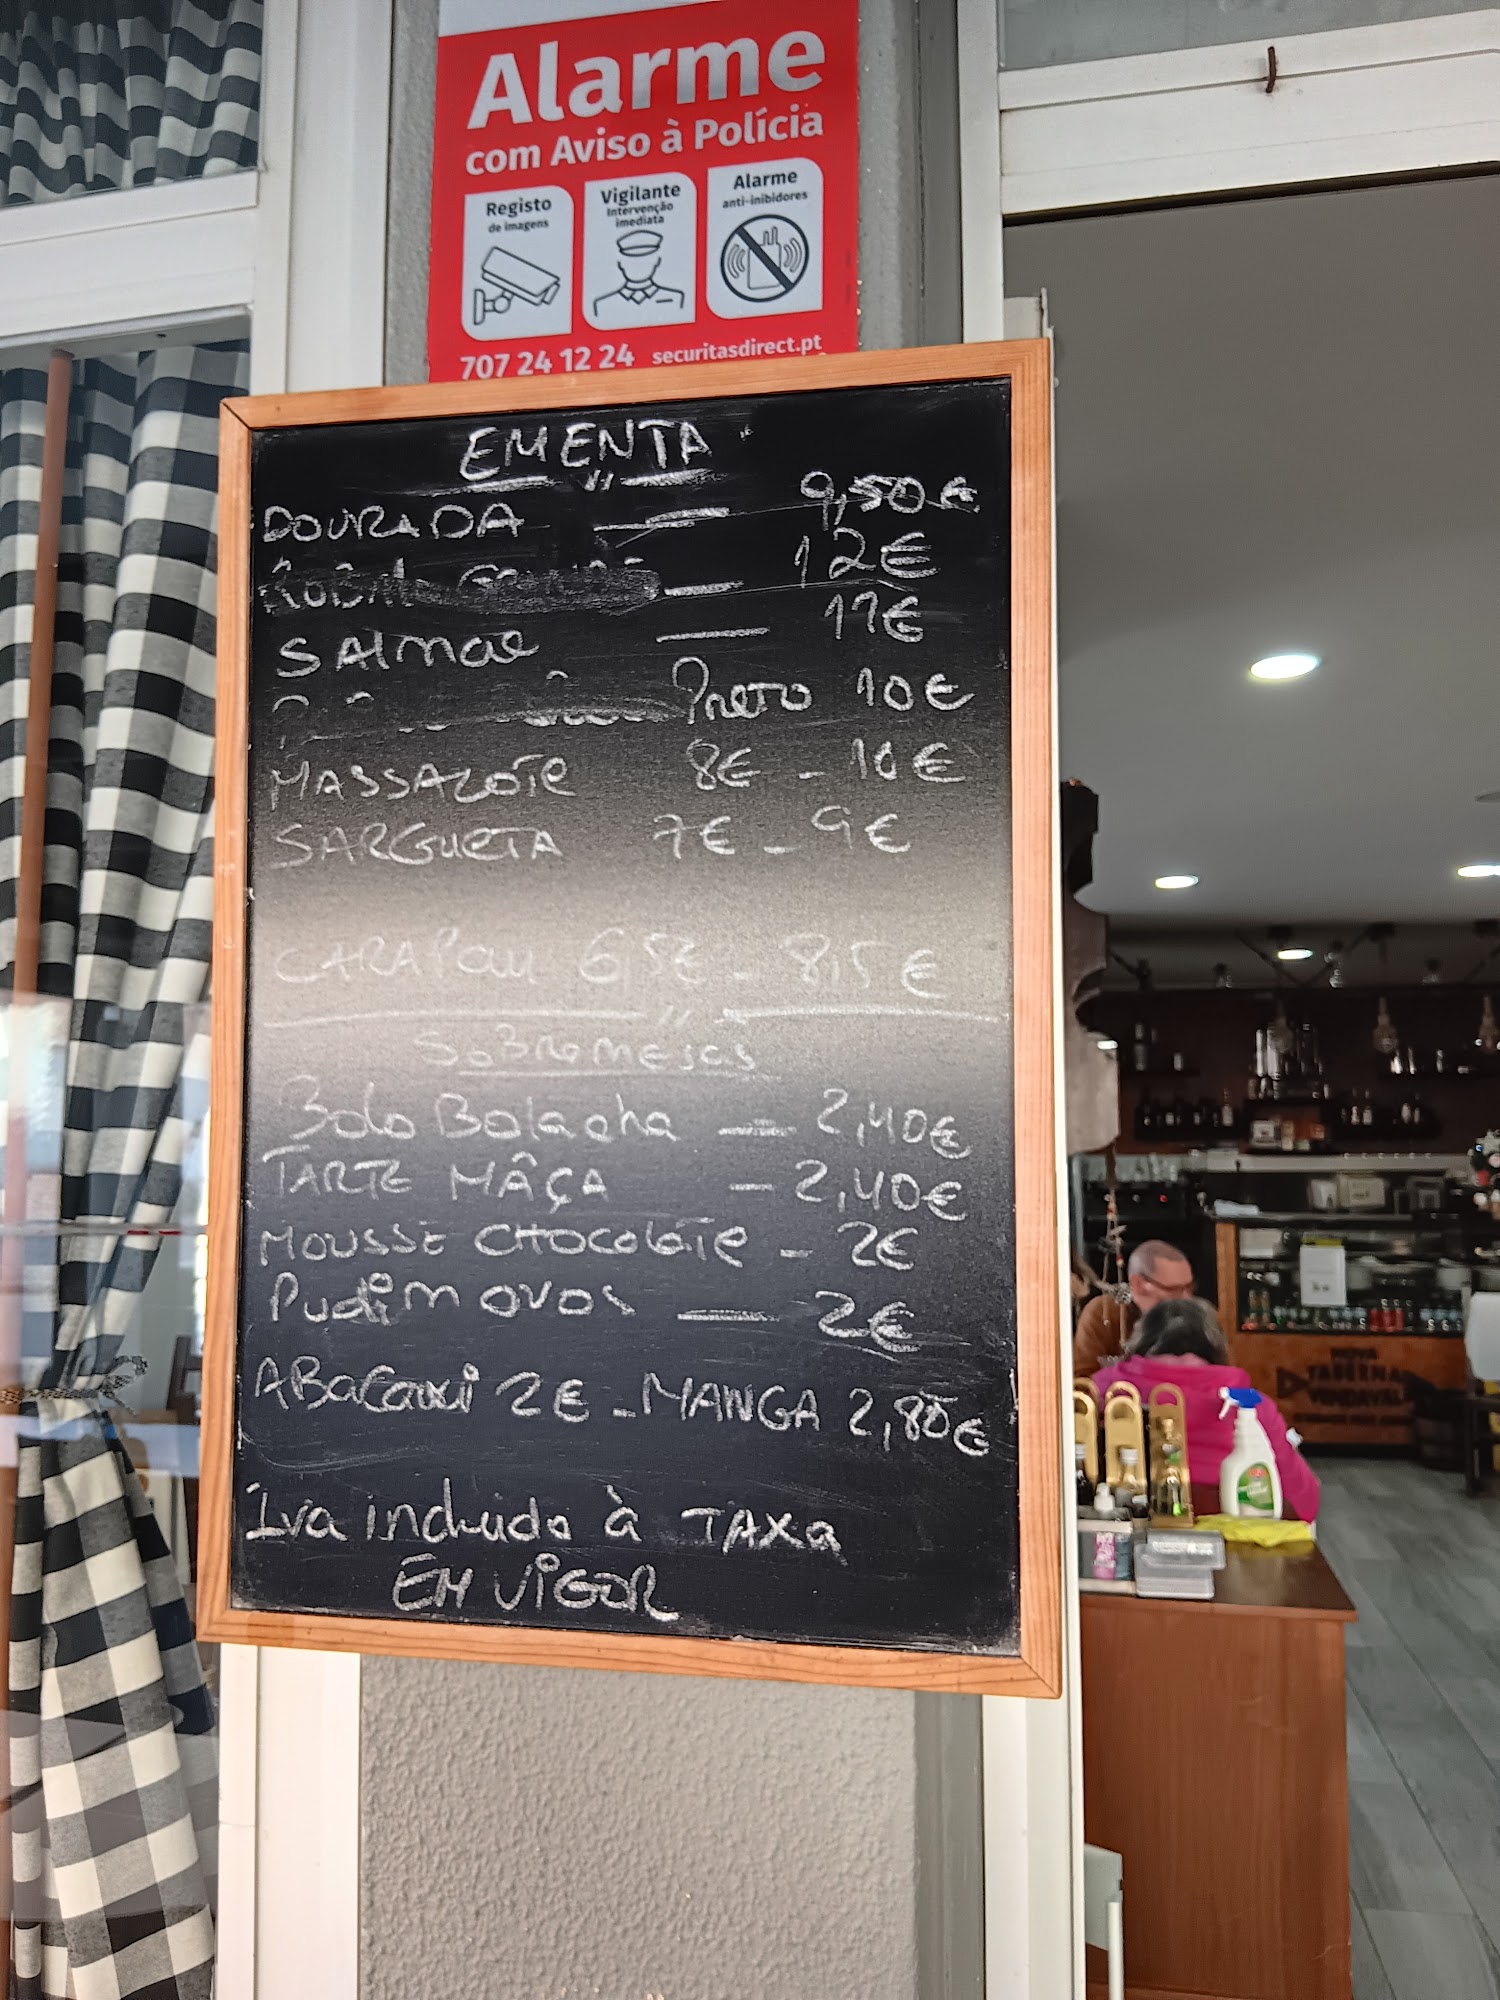 Alarme
com Aviso à Polícia
Registo
de imagens
Vigilante
Intervenção
imediata
Alarme
anti-inibidores
707 24 12 24 securitasdirect.pt
EMENTA
DOURADA 9,50€
12€
SALMAO 11€
Preto 10€
MASSAZOTE 8€ - 10€
SARGUETA 7€ - 9€
CARAPau 6,5€ - 8,5€
SoBremesas
Bolo Bolacha - 2,40€
TARTE MÂÇA - 2,40€
MOUSSE CHOCOLATE - 2€
Pudim ovos - 2€
ABacaxi 2€ - MANGA 2,80€
Iva incluido à TAXa
EM VIGOR
TABERNA
VENDAVAL